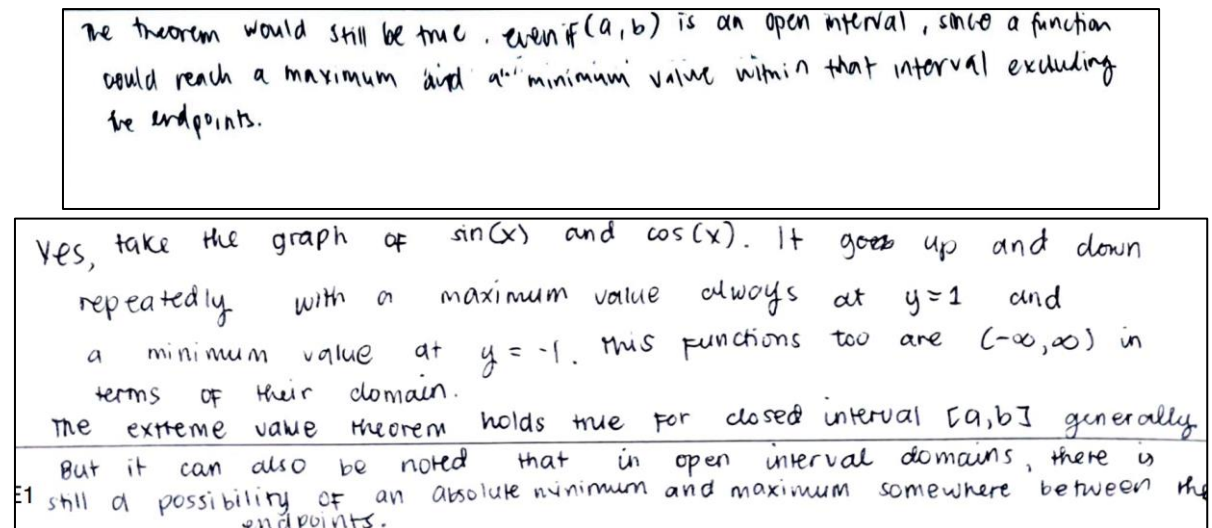 The theorem would still be true. even if (a,b) is an open interval, since a function
could reach a maximum and a minimum value within that interval excluding
the endpoints.
Yes, take the graph of sin(x) and cos(x). It goes up and down
repeatedly with a maximum value always at y=1 and
a minimum value at y = -1. This functions too are (-∞,∞) in
terms of their domain.
The extreme value theorem holds true for closed interval [a,b] generally
But it can also be noted that in open interval domains, there is
E1 still a possibility of an absolute minimum and maximum somewhere between the
endpoints.